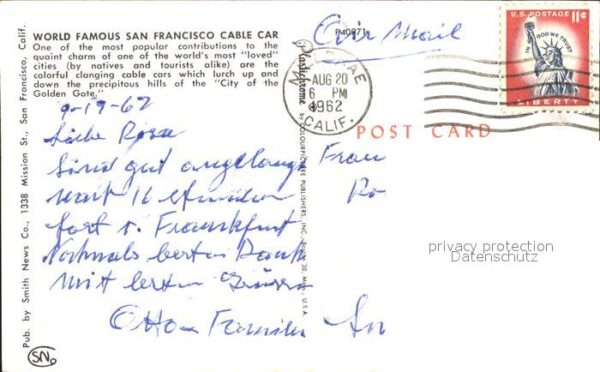 WORLD FAMOUS SAN FRANCISCO CABLE CAR
One of the most popular contributions to the
quaint charm of one of the world's most "loved"
cities (by natives and tourists alike) are the
colorful clanging cable cars which lurch up and
down the precipitous hills of the "City of the
Golden Gate."
Pub. by Smith News Co., 1338 Mission St., San Francisco, Calif.
SN
P40971
Plastichrome
BY COLOURPICTURE PUBLISHERS, INC. BOSTON 30, MASS., U.S.A.
Air Mail
AUG 20
6 PM
1962
CALIF.
U.S. POSTAGE 11¢
IN GOD WE TRUST
LIBERTY
POST CARD
Liebe Rosa
Sind gut angelangt
Frankfurt
Nochmals besten Dank
Mit besten Grüssen
Otto u. Familie
Frau
privacy protection
Datenschutz